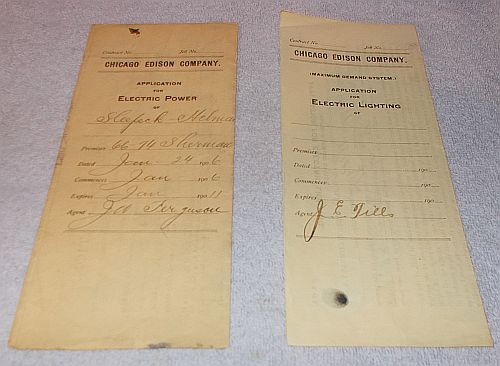 Contract No. Job No.
CHICAGO EDISON COMPANY.
APPLICATION
FOR
ELECTRIC POWER
OF
Premises 66 74 Sherman
Dated Jan 24 1906
Commences Jan 1906
Expires Jan 1911
Agent J A Ferguson
Contract No. Job No.
CHICAGO EDISON COMPANY.
(MAXIMUM DEMAND SYSTEM.)
APPLICATION
FOR
ELECTRIC LIGHTING
OF
Premises
Dated 190
Commences 190
Expires 190
Agent J E Tills